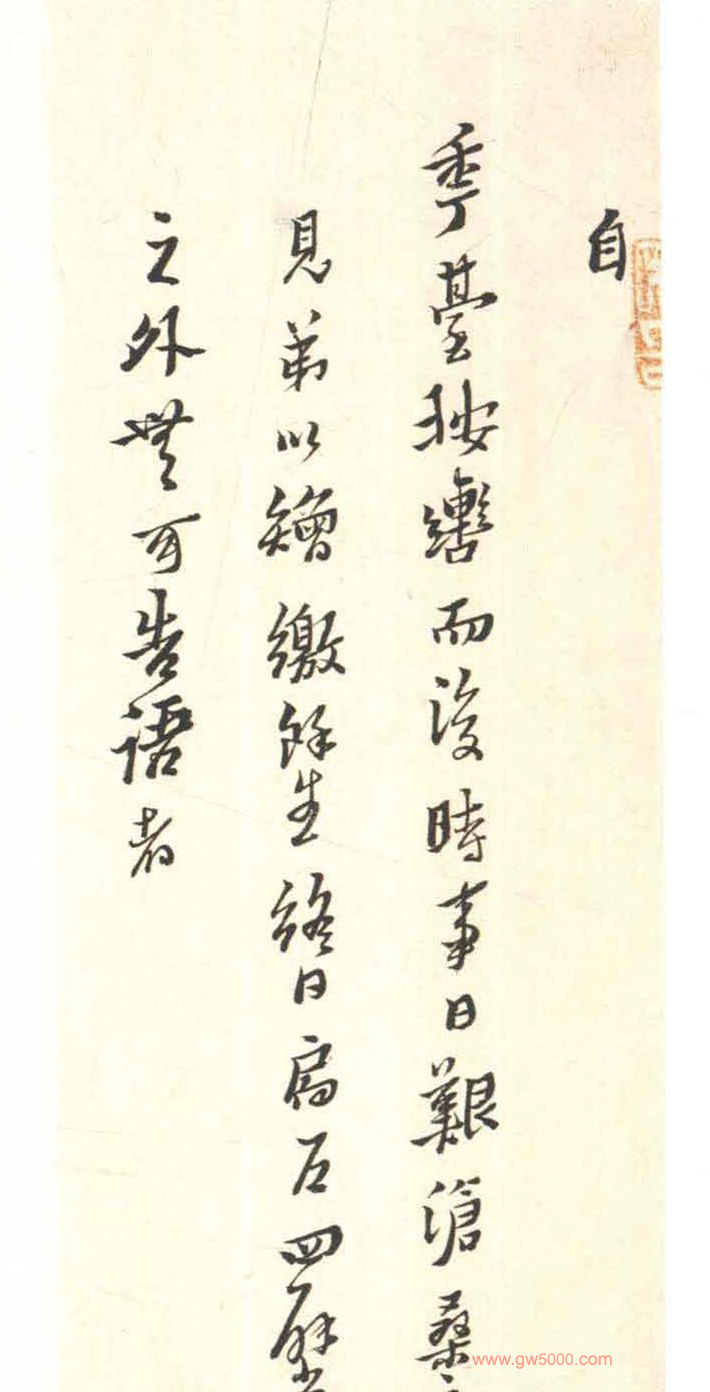 自
秊臺按轡而後時事日艱滄桑
見弟以矰繳餘生終日扃戶四壁
之外無可告語者
www.gw5000.com